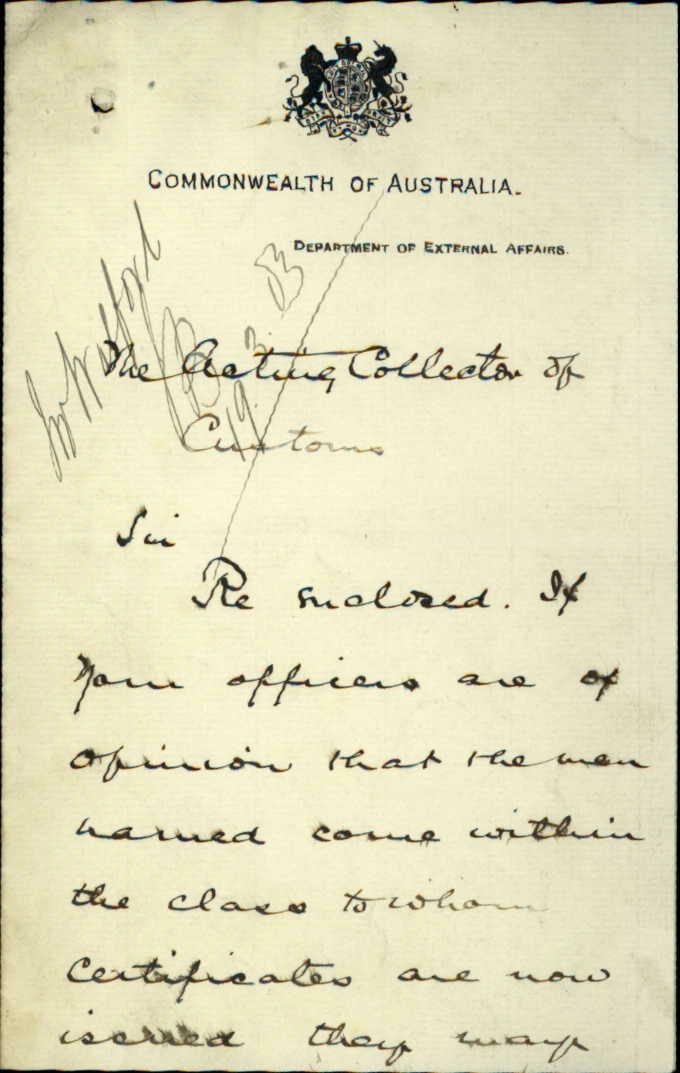 COMMONWEALTH OF AUSTRALIA.
DEPARTMENT OF EXTERNAL AFFAIRS.
The Acting Collector of
Customs
Sir
Re enclosed. If
your officers are of
opinion that the men
named come within
the class to whom
certificates are now
issued they may